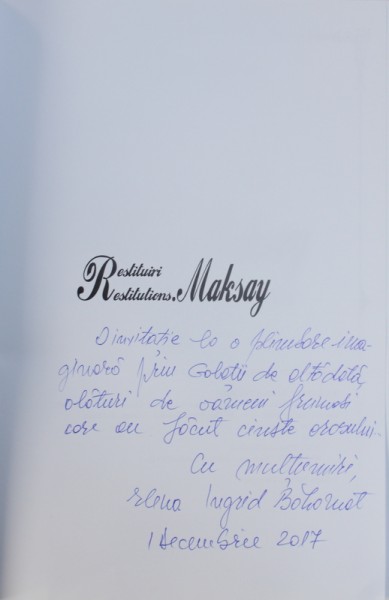 Restituiri
Restitutions. Maksay
O invitație la o plimbare ima-
ginară prin Galații de altădată,
alături de oameni frumoși
care au făcut cinste orașului.
Cu mulțumiri,
Elena Ingrid Bahamat
1 Decembrie 2017